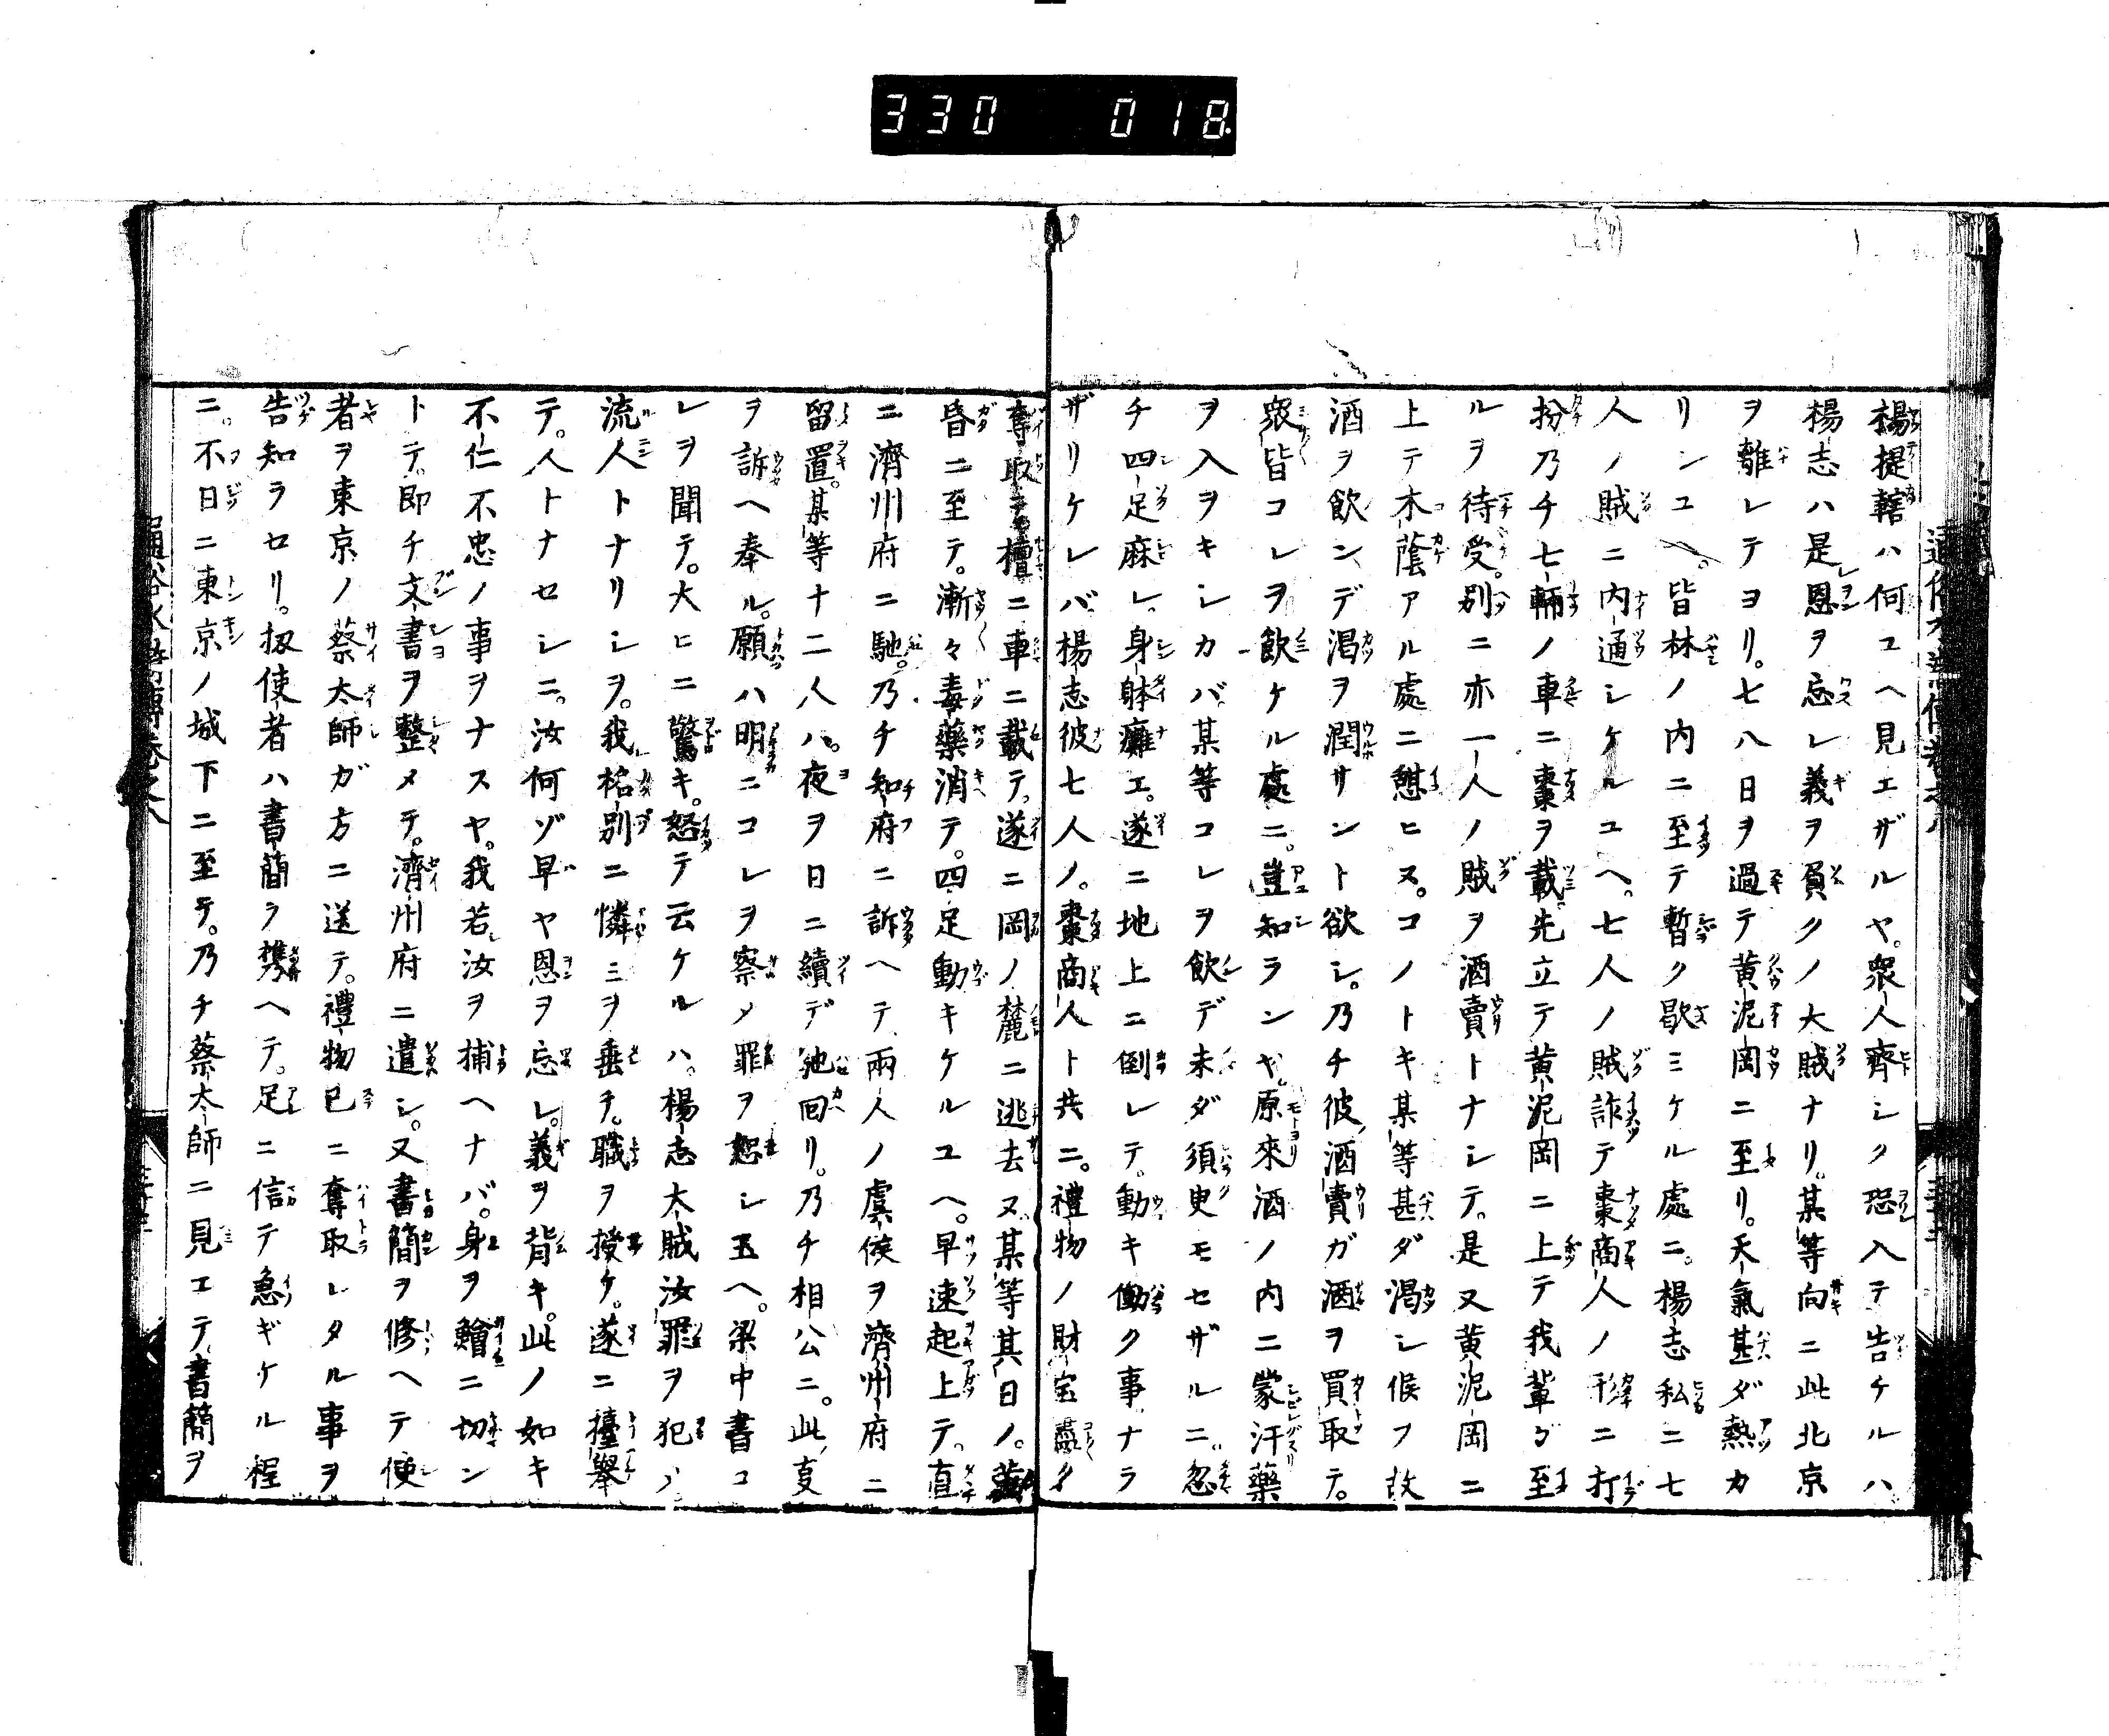 330 018
楊提轄ハ何ユヘ見エザルヤ。衆人齊シク恐入テ告ケルハ
楊志ハ是恩ヲ忘レ義ヲ負クノ大賊ナリ。某等向ニ此北京
ヲ離レテヨリ。七八日ヲ過テ黄泥岡ニ至リ。天氣甚ダ熱カ
リシユヘ。皆林ノ内ニ至テ暫ク歇ミケル處ニ。楊志私ニ七
人ノ賊ニ内通シケルユヘ。七人ノ賊詐テ棗商人ノ形ニ打
扮乃チ七輛ノ車ニ棗ヲ載先立テ黄泥岡ニ上テ我輩ガ至
ルヲ待受。別ニ亦一人ノ賊ヲ酒賣トナシテ。是又黄泥岡ニ
上テ木蔭アル處ニ憇ヒヌ。コノトキ某等甚ダ渇シ候フ故
酒ヲ飲ンデ渇ヲ潤サント欲シ。乃チ彼酒賣ガ酒ヲ買取テ。
衆皆コレヲ飲ケル處ニ。豈知ランヤ原來酒ノ内ニ蒙汗藥
ヲ入ヲキシカバ。某等コレヲ飲デ未ダ須臾モセザルニ。忽
チ四足麻レ。身躰癱エ。遂ニ地上ニ倒レテ。動キ働ク事ナラ
ザリケレバ。楊志彼七人ノ。棗商人ト共ニ。禮物ノ財宝盡ク
奪取テ擅ニ車ニ載テ。遂ニ岡ノ麓ニ逃去ヌ。某等其日ノ。黄
昏ニ至テ。漸々毒藥消テ。四足動キケルユヘ。早速起上テ。直
ニ濟州府ニ馳。乃チ知府ニ訴ヘテ。兩人ノ虞候ヲ濟州府ニ
留置。某等十二人ハ。夜ヲ日ニ續デ馳回リ。乃チ相公ニ。此叓
ヲ訴ヘ奉ル。願ハ明ニコレヲ察メ罪ヲ恕シ玉ヘ。梁中書コ
レヲ聞テ。大ヒニ驚キ。怒テ云ケルハ。楊志大賊汝罪ヲ犯ノ
流人トナリシヲ。我格別ニ憐ミヲ垂チ。職ヲ授ケ。遂ニ擡舉
テ。人トナセシニ。汝何ゾ早ヤ恩ヲ忘レ。義ヲ背キ。此ノ如キ
不仁不忠ノ事ヲナスヤ。我若汝ヲ捕ヘナバ。身ヲ鱠ニ切ン
トテ。即チ文書ヲ整メテ。濟州府ニ遣シ。又書簡ヲ修ヘテ使
者ヲ東京ノ蔡太師ガ方ニ送テ。禮物已ニ奪取レタル事ヲ
告知ラセリ。扨使者ハ書簡ヲ携ヘテ。足ニ信テ急ギケル程
ニ。不日ニ東京ノ城下ニ至テ。乃チ蔡太師ニ見エテ。書簡ヲ